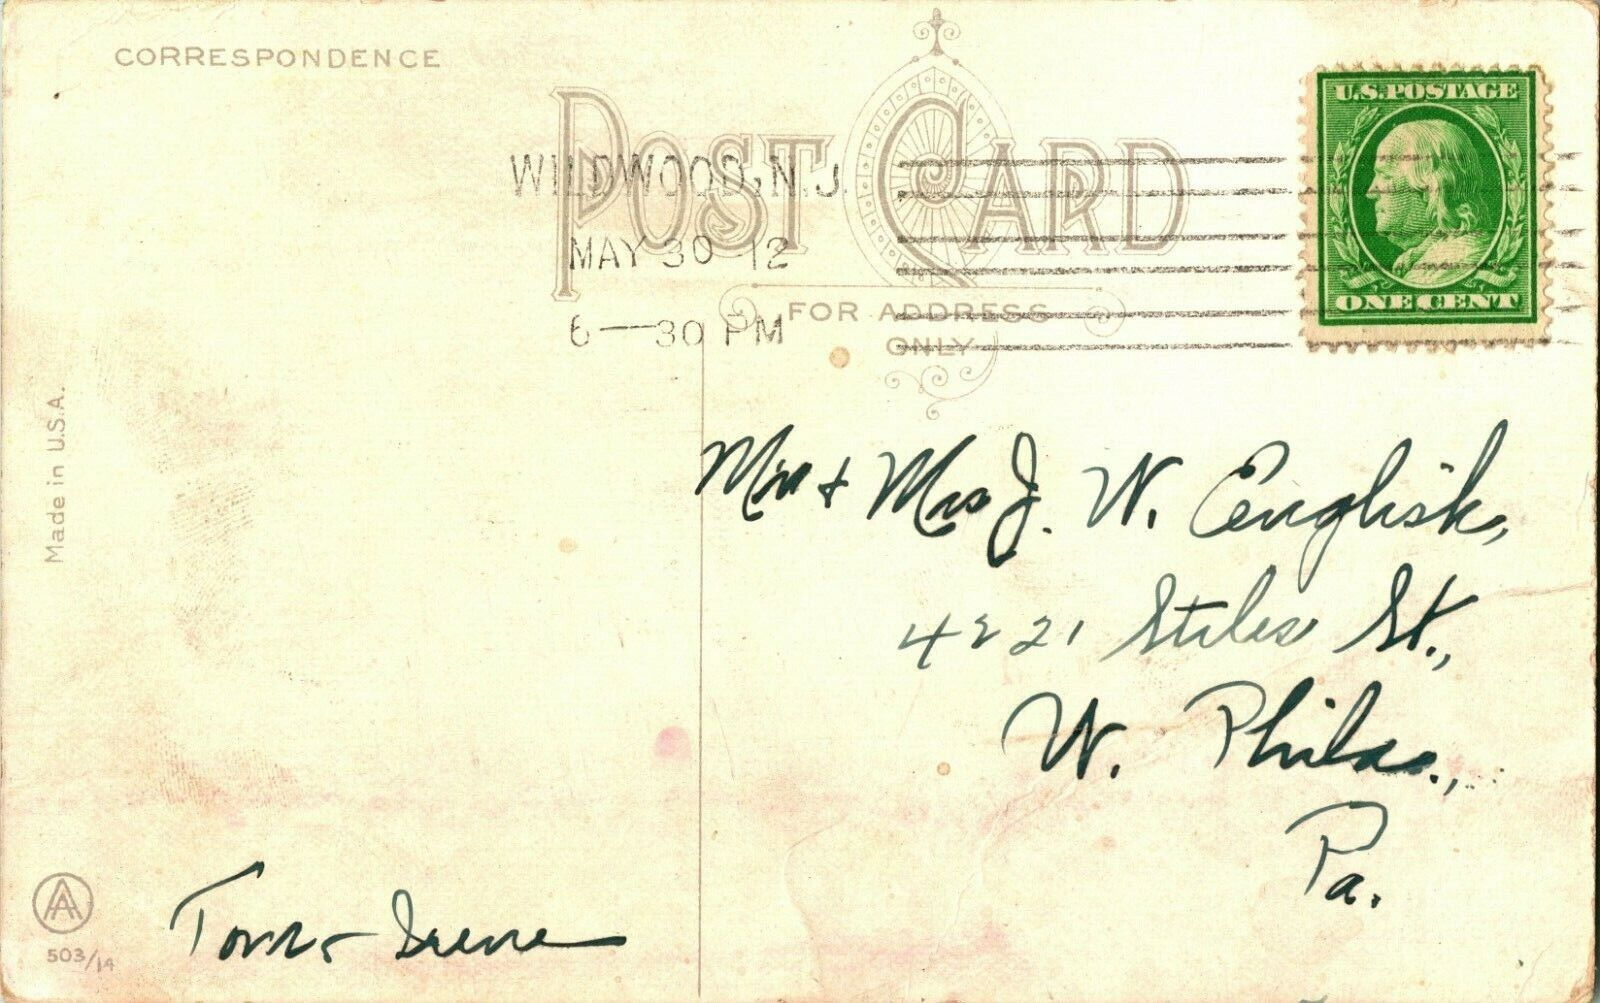 CORRESPONDENCE
POST CARD
WILDWOOD, N.J.
MAY 30 12
6—30 PM
FOR ADDRESS
ONLY
U.S. POSTAGE
ONE CENT
Made in U.S.A.
Mr. + Mrs J. W. English,
4221 Stiles St.,
W. Phila.,
Pa.
Tom + Irene
AA
503/14